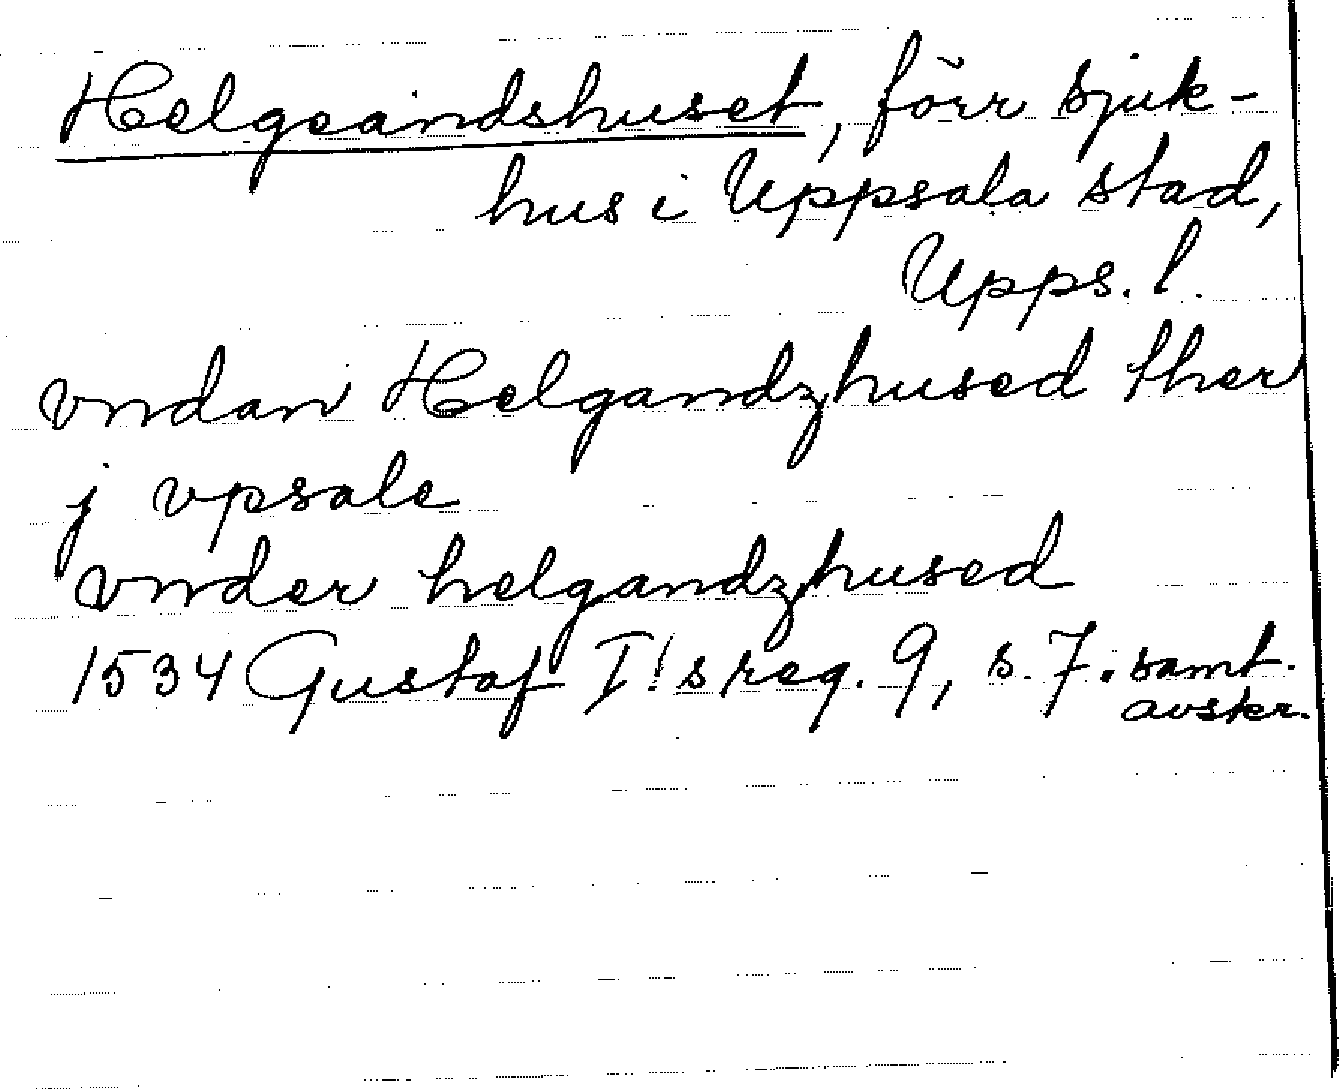 Helgeandshuset, förr sjuk-
hus i Uppsala stad,
Upps. l.
vndan Helgandzhused ther
j vpsale
vnder helgandzhused
1534 Gustaf I:s reg. 9, s. 7. samt.
avskr.